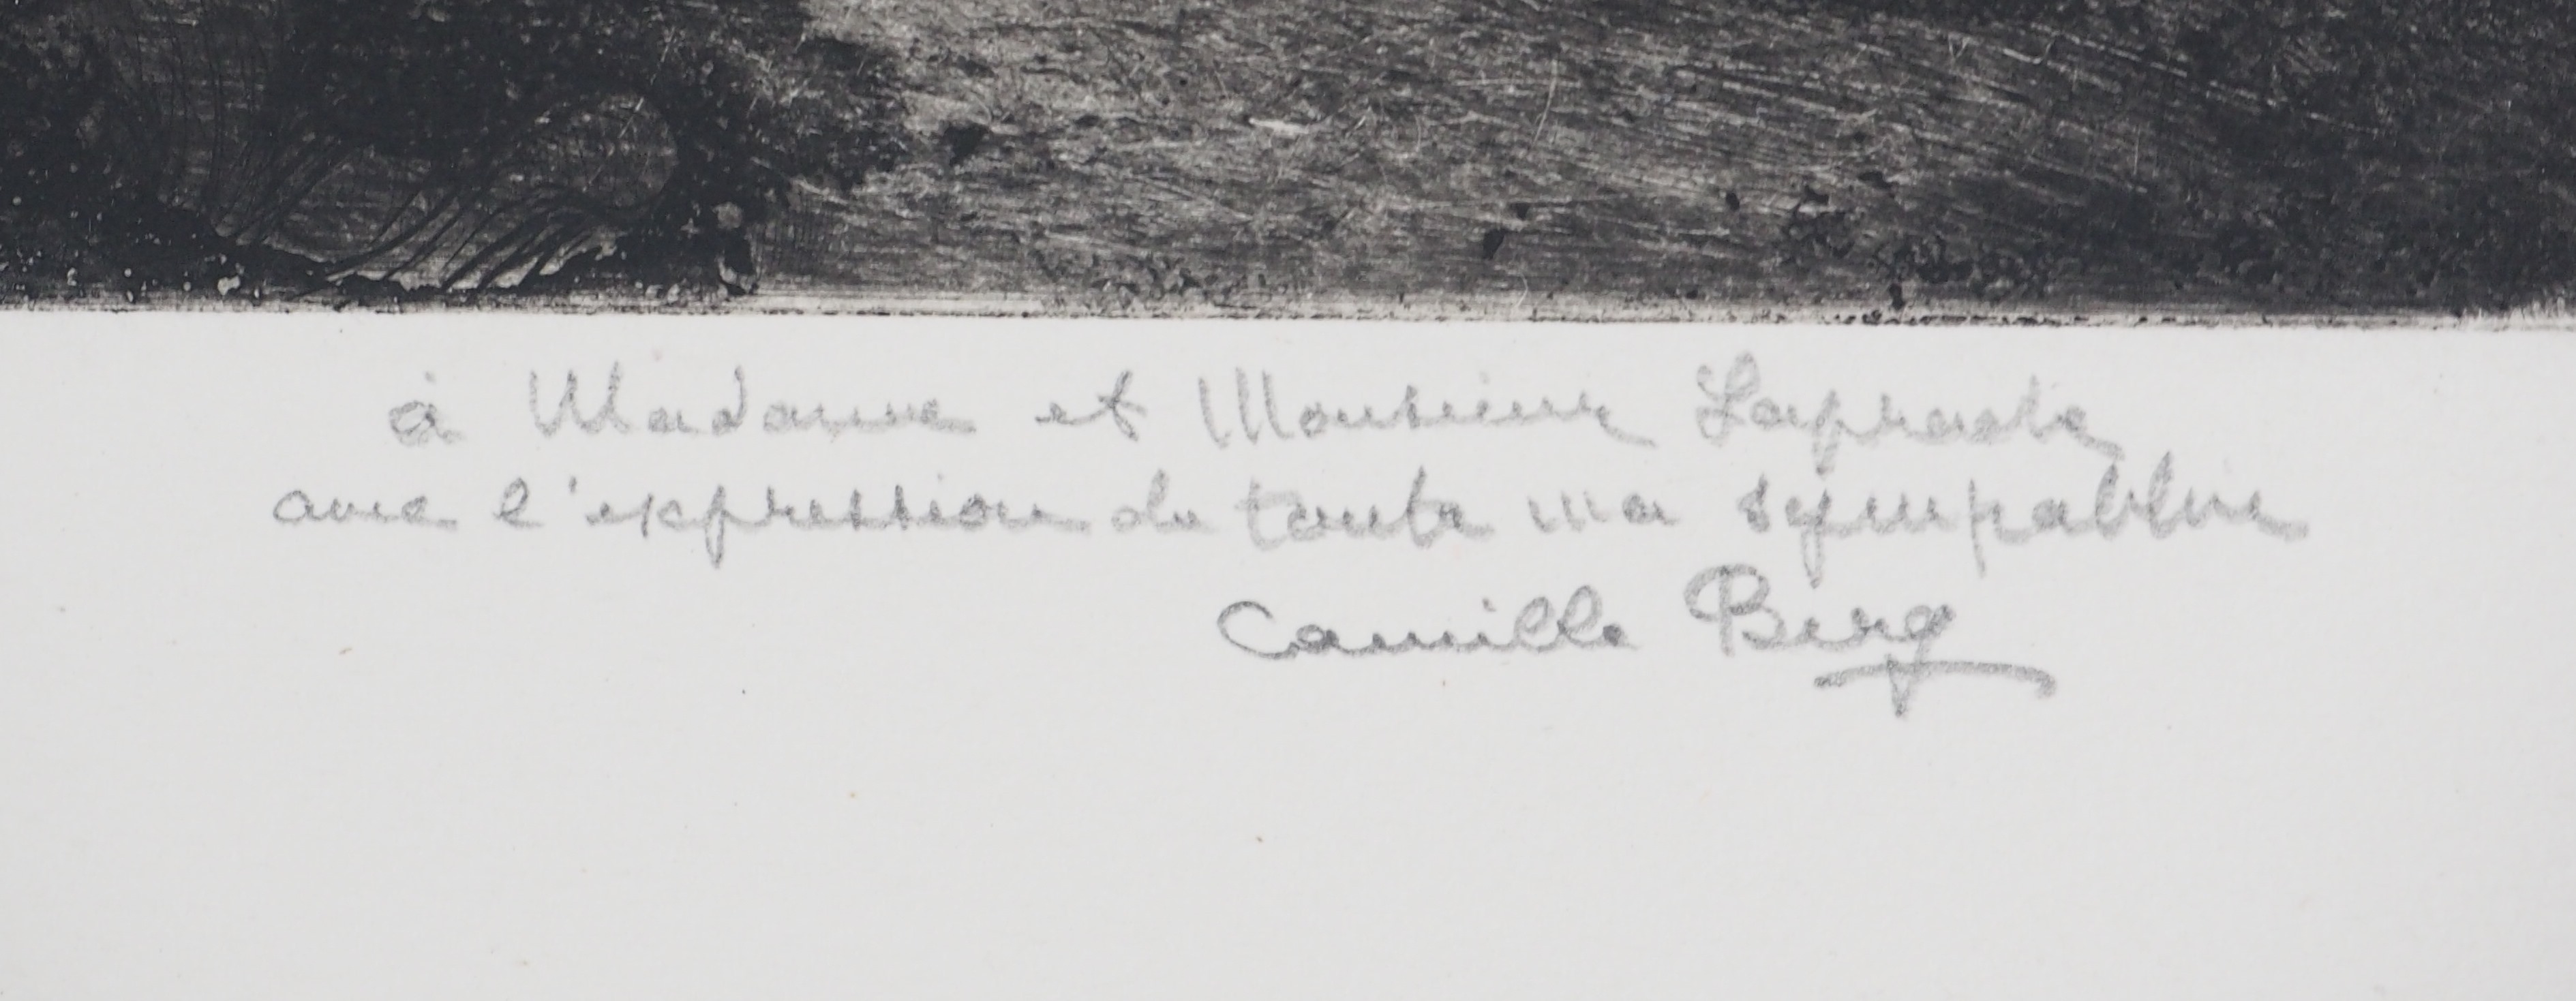 à Madame et Monsieur Laprade
avec l'expression de toute ma sympathie
Camille Berg